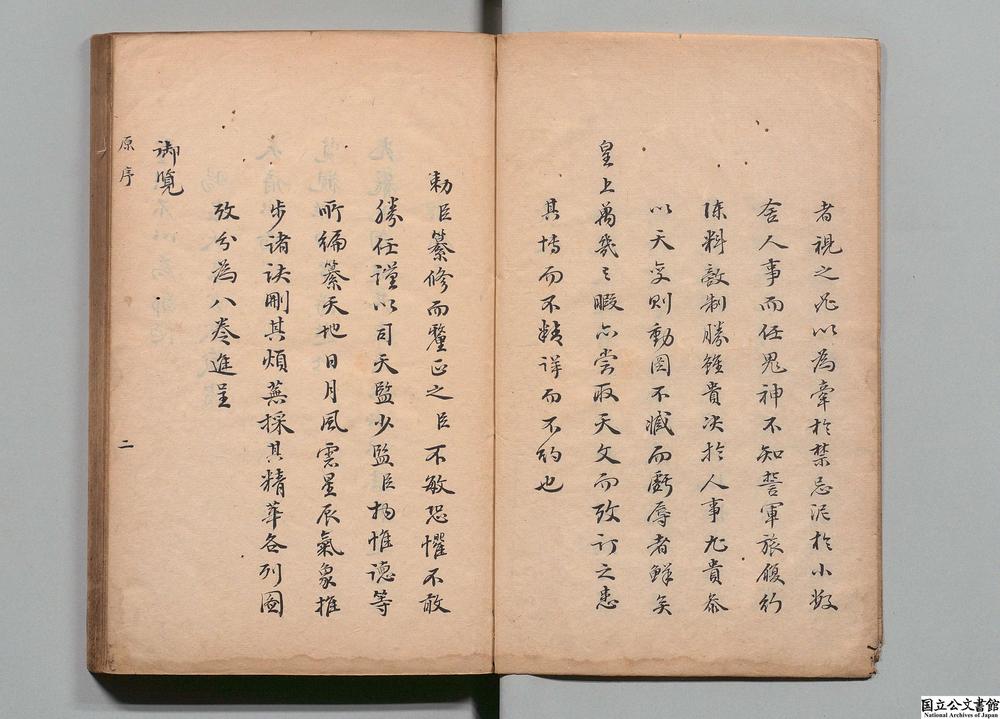 者視之非以為牽於禁忌泥於小數
舍人事而任鬼神不知誓軍旅履行
陳料敵制勝雖貴决於人事尤貴叅
以天变則動罔不臧而虧辱者鮮矣
皇上萬幾之暇亦嘗取天文而攷订之患
其博而不精详而不约也
勅臣纂修而釐正之臣不敏恐懼不敢
勝任谨以司天監少監臣楊惟德等
所編纂天地日月風雲星辰氣象推
步诸诀删其烦蕪採其精華各列圖
攷分為八卷進呈
御覽
原序
二
国立公文書館
National Archives of Japan